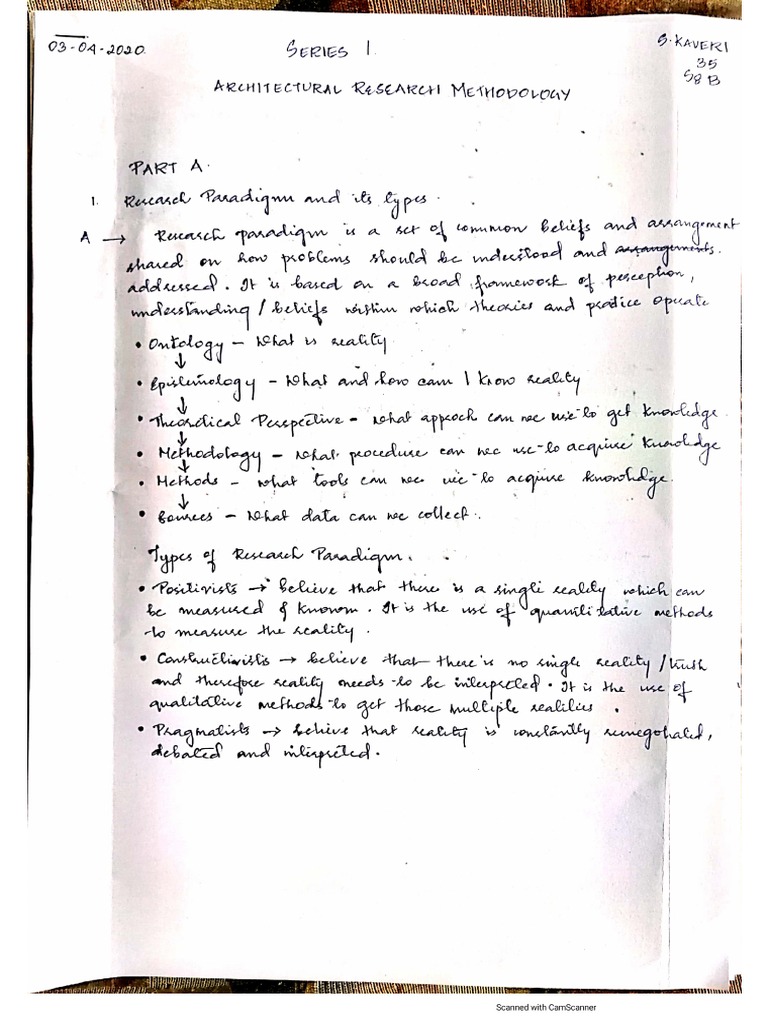 03-04-2020
SERIES 1
S. KAVERI
35
S8 B
ARCHITECTURAL RESEARCH METHODOLOGY
PART A.
1. Research Paradigm and its types.
A → Research paradigm is a set of common beliefs and arrangement
shared on how problems should be understood and arrangements.
addressed. It is based on a broad framework of perception,
understanding / beliefs within which theories and practice operate
• Ontology - What is reality
↓
• Epistemology - What and how can I know reality
↓
• Theoretical Perspective - what approch can we use to get knowledge.
↓
• Methodology - what procedure can we use to acquire knowledge
↓
• Methods - what tools can we use to acquire knowledge.
↓
• Sources - What data can we collect.
Types of Research Paradigm.
• Positivists → believe that there is a single reality which can
be measured & known. It is the use of quantitative methods
to measure the reality.
• Constructivists → believe that there is no single reality / truth
and therefore reality needs to be interpreted. It is the use of
qualitative methods to get those multiple realities.
• Pragmatists → believe that reality is constantly renegotiated,
debated and interpreted.
Scanned with CamScanner